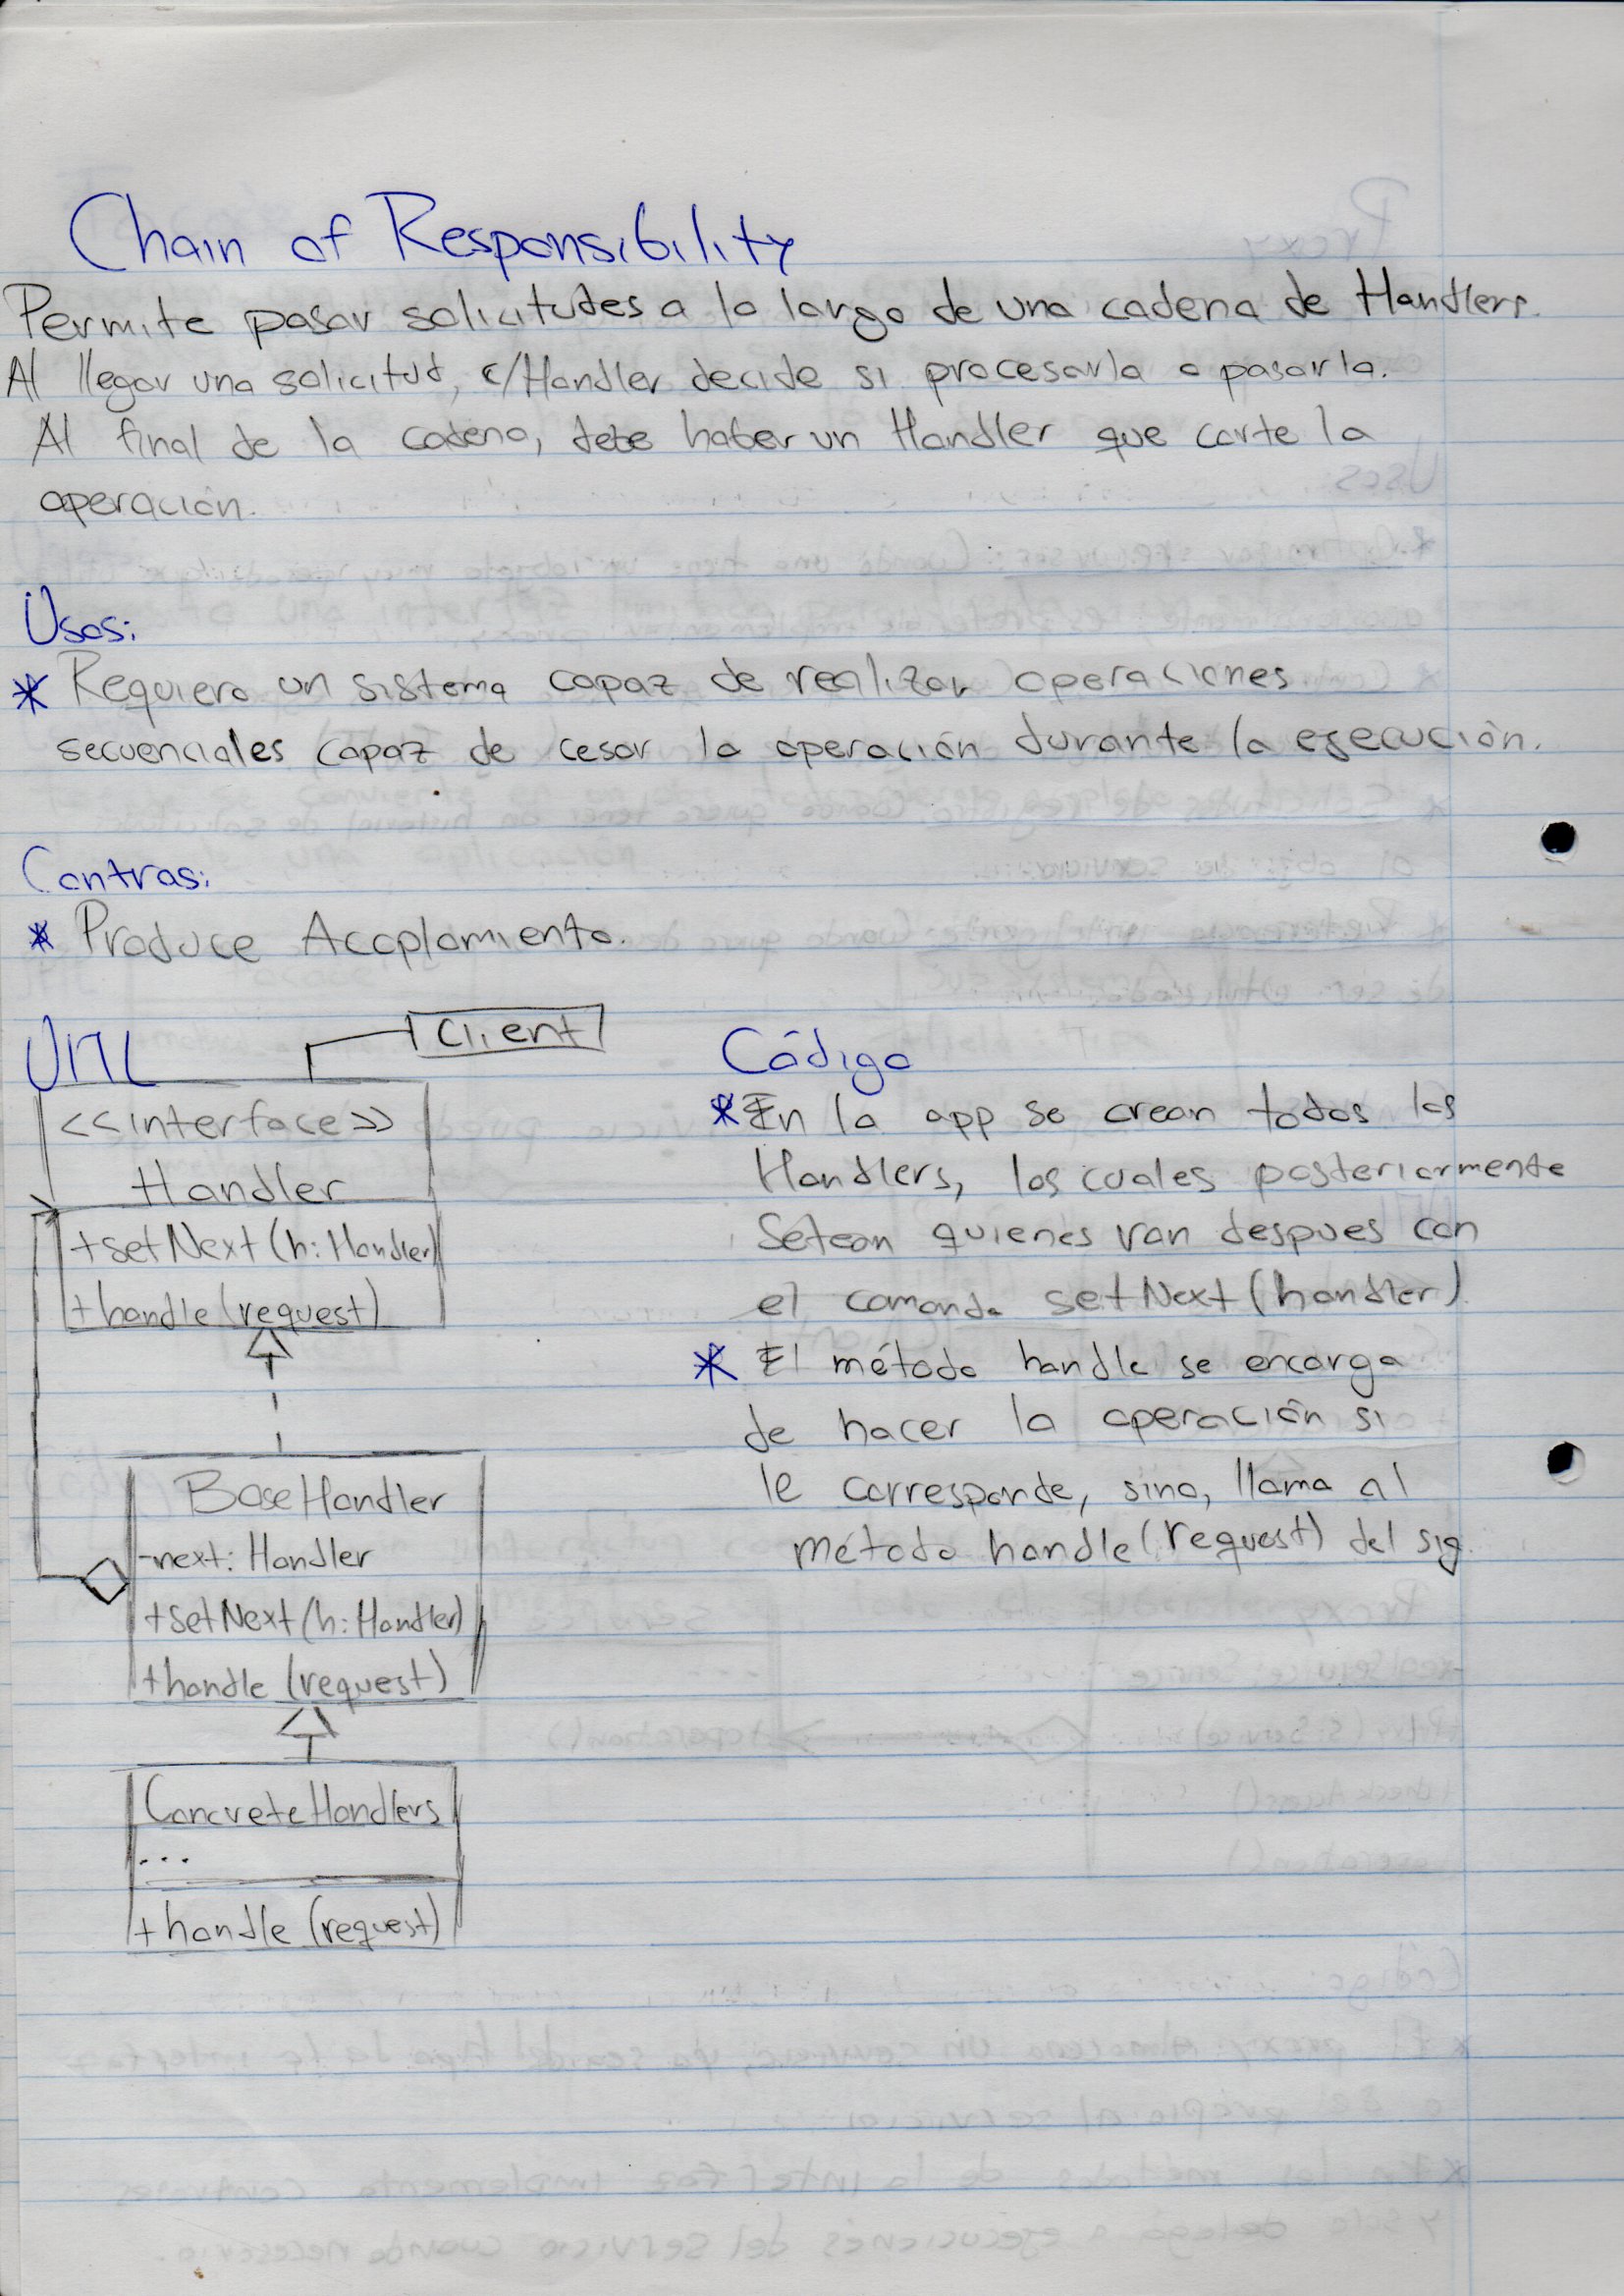 Chain of Responsibility
Permite pasar solicitudes a lo largo de una cadena de Handlers.
Al llegar una solicitud, c/Handler decide si procesarla o pasarla.
Al final de la cadena, debe haber un Handler que corte la
operación.
Usos:
* Requiero un sistema capaz de realizar operaciones
secuenciales capaz de cesar la operación durante la ejecución.
Contras:
* Produce Acoplamiento.
UML
Client
<<interface>>
Handler
+setNext(h:Handler)
+handle(request)
BaseHandler
-next: Handler
+setNext(h:Handler)
+handle(request)
ConcreteHandlers
...
+handle(request)
Código
* En la app se crean todos los
Handlers, los cuales posteriormente
Setean quienes van despues con
el comando setNext(handler)
* El método handle se encarga
de hacer la operación si
le corresponde, sino, llama al
método handle(request) del sig.